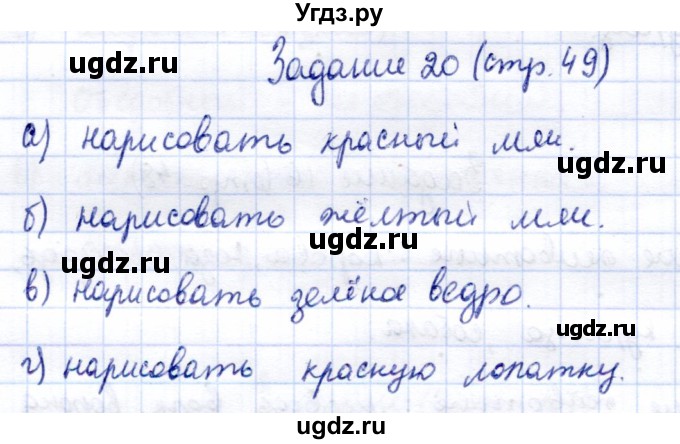 Угдз.ру
Задание 20 (стр. 49)
ugdz.ru ugdz.ru
а) нарисовать красный мяч.
ugdz.ru
б) нарисовать жёлтый мяч.
ugdz.ru ugdz.ru
в) нарисовать зелёное ведро.
ugdz.ru
г) нарисовать красную лопатку.
ugdz.ru ugdz.ru